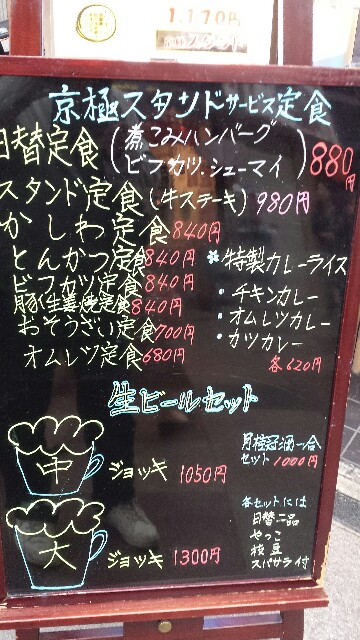 1.170円
京極スタンドサービス定食
日替定食(煮こみハンバーグ
ビフカツ.シューマイ)880円
スタンド定食(牛ステーキ)980円
かしわ定食840円
とんかつ定食840円
ビフカツ定食840円
豚(生姜)焼定食840円
おそうざい定食700円
オムレツ定食680円
*特製カレーライス
・チキンカレー
・オムレツカレー
・カツカレー
各620円
生ビールセット
中 ジョッキ 1050円
大 ジョッキ 1300円
月桂冠酒一合
セット1000円
各セットには
日替一品
やっこ
枝豆
スパサラ付